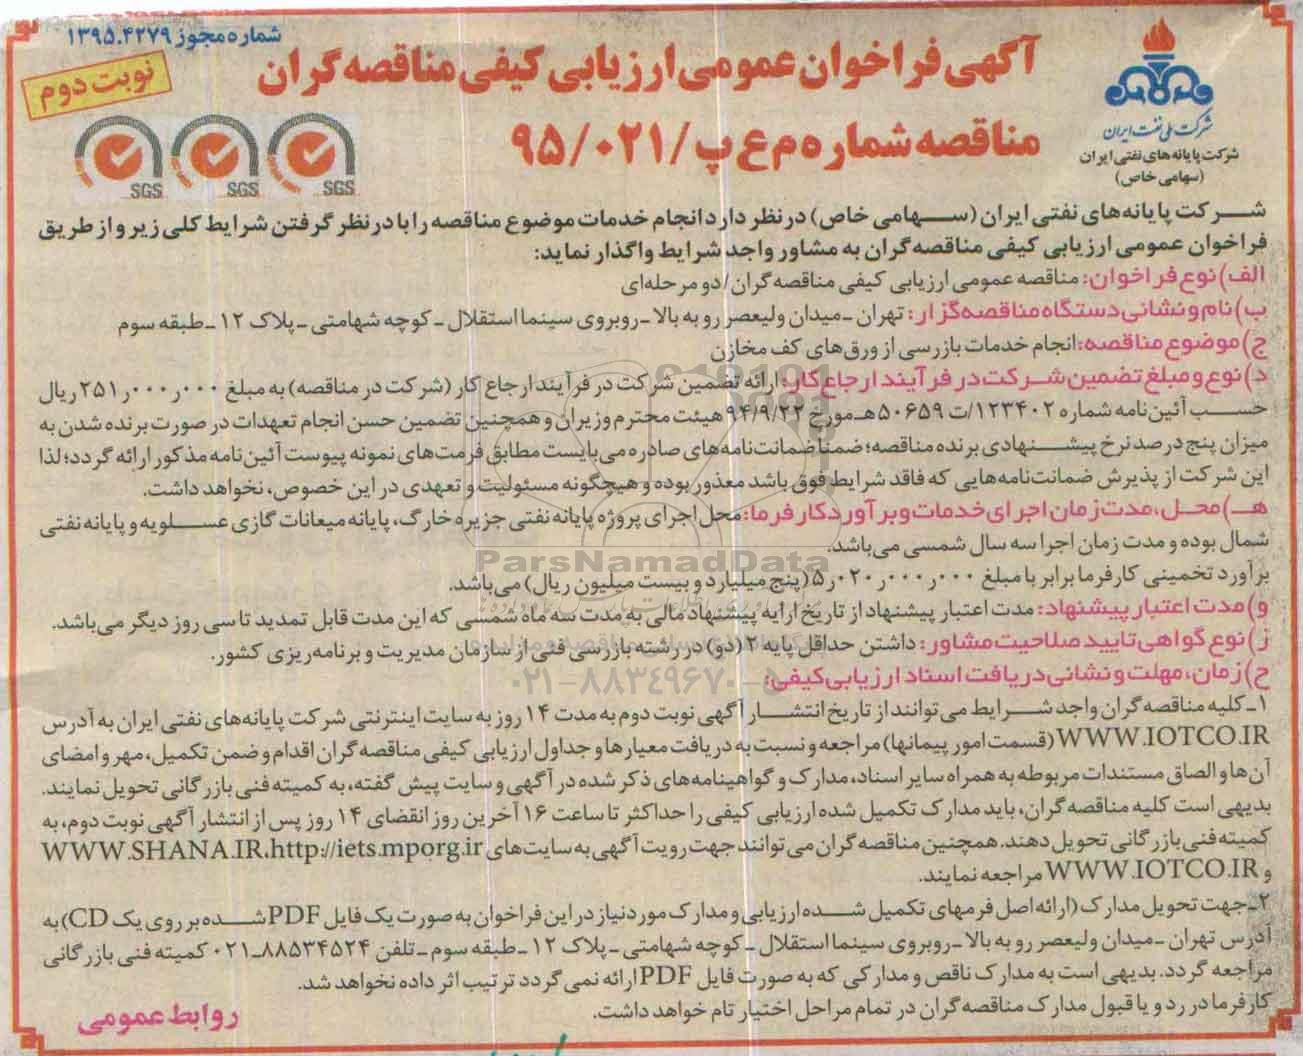 شماره مجوز ۱۳۹۵.۴۲۷۹
نوبت دوم
آگهی فراخوان عمومی ارزیابی کیفی مناقصه گران
مناقصه شماره م ع پ /۹۵/۰۲۱
شرکت ملی نفت ایران
شرکت پایانه های نفتی ایران
(سهامی خاص)
SGS SGS SGS
شرکت پایانه‌های نفتی ایران (سهامی خاص) در نظر دارد انجام خدمات موضوع مناقصه را با در نظر گرفتن شرایط کلی زیر و از طریق
فراخوان عمومی ارزیابی کیفی مناقصه گران به مشاور واجد شرایط واگذار نماید:
الف) نوع فراخوان: مناقصه عمومی ارزیابی کیفی مناقصه گران/دو مرحله‌ای
ب) نام و نشانی دستگاه مناقصه‌گزار: تهران -میدان ولیعصر رو به بالا -روبروی سینما استقلال - کوچه شهامتی -پلاک ۱۲ -طبقه سوم
ج) موضوع مناقصه: انجام خدمات بازرسی از ورق‌های کف مخازن
د) نوع و مبلغ تضمین شرکت در فرآیند ارجاع کار: ارائه تضمین شرکت در فرآیند ارجاع کار (شرکت در مناقصه) به مبلغ ۲۵۱ر۰۰۰ر۰۰۰ ریال
حسب آئین‌نامه شماره ۱۲۳۴۰۲/ت ۵۰۶۵۹هـ مورخ ۹۴/۹/۲۲ هیئت محترم وزیران و همچنین تضمین حسن انجام تعهدات در صورت برنده شدن به
میزان پنج درصد نرخ پیشنهادی برنده مناقصه؛ ضمناً ضمانت‌نامه‌های صادره می‌بایست مطابق فرمت‌های نمونه پیوست آئین‌نامه مذکور ارائه گردد؛ لذا
این شرکت از پذیرش ضمانت‌نامه‌هایی که فاقد شرایط فوق باشد معذور بوده و هیچگونه مسئولیت و تعهدی در این خصوص، نخواهد داشت.
هـ) محل، مدت زمان اجرای خدمات و برآورد کارفرما: محل اجرای پروژه پایانه نفتی جزیره خارگ، پایانه میعانات گازی عسلویه و پایانه نفتی
شمال بوده و مدت زمان اجرا سه سال شمسی می‌باشد.
برآورد تخمینی کارفرما برابر با مبلغ ۵ر۰۲۰ر۰۰۰ر۰۰۰ (پنج میلیارد و بیست میلیون ریال) می‌باشد.
و) مدت اعتبار پیشنهاد: مدت اعتبار پیشنهاد از تاریخ ارایه پیشنهاد مالی به مدت سه ماه شمسی که این مدت قابل تمدید تا سی روز دیگر می‌باشد.
ز) نوع گواهی تایید صلاحیت مشاور: داشتن حداقل پایه ۲ (دو) در رشته بازرسی فنی از سازمان مدیریت و برنامه‌ریزی کشور.
ح) زمان، مهلت و نشانی دریافت اسناد ارزیابی کیفی:
۱ـ کلیه مناقصه گران واجد شرایط می‌توانند از تاریخ انتشار آگهی نوبت دوم به مدت ۱۴ روز به سایت اینترنتی شرکت پایانه‌های نفتی ایران به آدرس
WWW.IOTCO.IR (قسمت امور پیمانها) مراجعه و نسبت به دریافت معیارها و جداول ارزیابی کیفی مناقصه گران اقدام و ضمن تکمیل، مهر و امضای
آن‌ها و الصاق مستندات مربوطه به همراه سایر اسناد، مدارک و گواهینامه‌های ذکر شده در آگهی و سایت پیش گفته، به کمیته فنی بازرگانی تحویل نمایند.
بدیهی است کلیه مناقصه گران، باید مدارک تکمیل شده ارزیابی کیفی را حداکثر تا ساعت ۱۶ آخرین روز انقضای ۱۴ روز پس از انتشار آگهی نوبت دوم، به
کمیته فنی بازرگانی تحویل دهند. همچنین مناقصه گران می‌توانند جهت رویت آگهی به سایت‌های WWW.SHANA.IR،http://iets.mporg.ir
و WWW.IOTCO.IR مراجعه نمایند.
۲ـ جهت تحویل مدارک (ارائه اصل فرمهای تکمیل شده ارزیابی و مدارک مورد نیاز در این فراخوان به صورت یک فایل PDF شده بر روی یک CD) به
آدرس تهران -میدان ولیعصر رو به بالا -روبروی سینما استقلال - کوچه شهامتی -پلاک ۱۲ -طبقه سوم -تلفن ۸۸۵۳۴۵۲۴-۰۲۱ کمیته فنی بازرگانی
مراجعه گردد. بدیهی است به مدارک ناقص و مدارکی که به صورت فایل PDF ارائه نمی‌گردد ترتیب اثر داده نخواهد شد.
کارفرما در رد و یا قبول مدارک مناقصه گران در تمام مراحل اختیار تام خواهد داشت.
روابط عمومی
ParsNamadData
۰۲۱-۸۸۳۴۹۶۷۰-۵